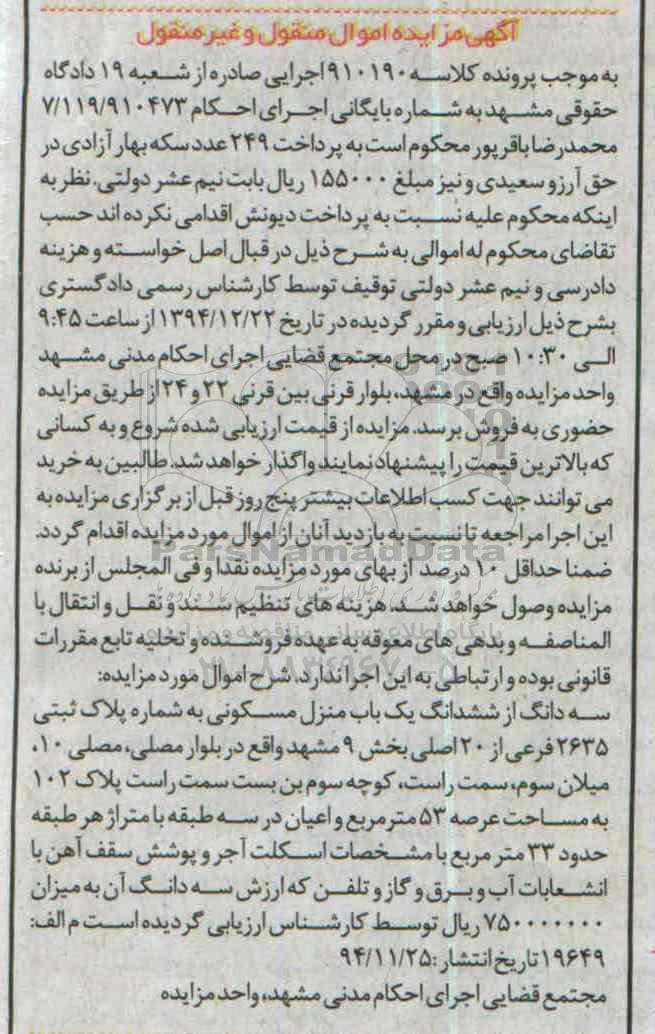 آگهی مزایده اموال منقول و غیر منقول
به موجب پرونده کلاسه ۹۱۰۱۹۰ اجرایی صادره از شعبه ۱۹ دادگاه
حقوقی مشهد به شماره بایگانی اجرای احکام ۷/۱۱۹/۹۱۰۴۷۳
محمدرضا باقرپور محکوم است به پرداخت ۲۴۹ عدد سکه بهار آزادی در
حق آرزو سعیدی و نیز مبلغ ۱۵۵۰۰۰ ریال بابت نیم عشر دولتی. نظر به
اینکه محکوم علیه نسبت به پرداخت دیونش اقدامی نکرده اند حسب
تقاضای محکوم له اموالی به شرح ذیل در قبال اصل خواسته و هزینه
دادرسی و نیم عشر دولتی توقیف توسط کارشناس رسمی دادگستری
بشرح ذیل ارزیابی و مقرر گردیده در تاریخ ۱۳۹۴/۱۲/۲۲ از ساعت ۹:۴۵
الی ۱۰:۳۰ صبح در محل مجتمع قضایی اجرای احکام مدنی مشهد
واحد مزایده واقع در مشهد، بلوار قرنی بین قرنی ۲۲ و ۲۴ از طریق مزایده
حضوری به فروش برسد. مزایده از قیمت ارزیابی شده شروع و به کسانی
که بالاترین قیمت را پیشنهاد نمایند واگذار خواهد شد. طالبین به خرید
می توانند جهت کسب اطلاعات بیشتر پنج روز قبل از برگزاری مزایده به
این اجرا مراجعه تا نسبت به بازدید آنان از اموال مورد مزایده اقدام گردد.
ParsNamadData
ضمنا حداقل ۱۰ درصد از بهای مورد مزایده نقدا و فی المجلس از برنده
مزایده وصول خواهد شد. هزینه های تنظیم سند و نقل و انتقال با
المناصفه و بدهی های معوقه به عهده فروشنده و تخلیه تابع مقررات
قانونی بوده و ارتباطی به این اجرا ندارد. شرح اموال مورد مزایده:
سه دانگ از ششدانگ یک باب منزل مسکونی به شماره پلاک ثبتی
۲۶۳۵ فرعی از ۲۰ اصلی بخش ۹ مشهد واقع در بلوار مصلی، مصلی ۱۰،
میلان سوم، سمت راست، کوچه سوم بن بست سمت راست پلاک ۱۰۲
به مساحت عرصه ۵۳ مترمربع و اعیان در سه طبقه با متراژ هر طبقه
حدود ۳۳ متر مربع با مشخصات اسکلت آجر و پوشش سقف آهن با
انشعابات آب و برق و گاز و تلفن که ارزش سه دانگ آن به میزان
۷۵۰۰۰۰۰۰۰ ریال توسط کارشناس ارزیابی گردیده است م الف:
۱۹۶۴۹ تاریخ انتشار: ۹۴/۱۱/۲۵
مجتمع قضایی اجرای احکام مدنی مشهد، واحد مزایده